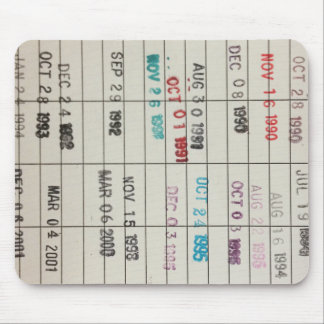 OCT 28 1990
NOV 16 1990
DEC 08 1990
AUG 30
OCT 01 1991
NOV 26
SEP 29 1992
DEC 24 1992
OCT 28 1993
JAN 24 1994
JUL 19
AUG 16 1994
AUG 22 1995
OCT 03 1995
OCT 24 1995
DEC 03
NOV 15 1998
MAR 06 2000
MAR 04 2001
2001